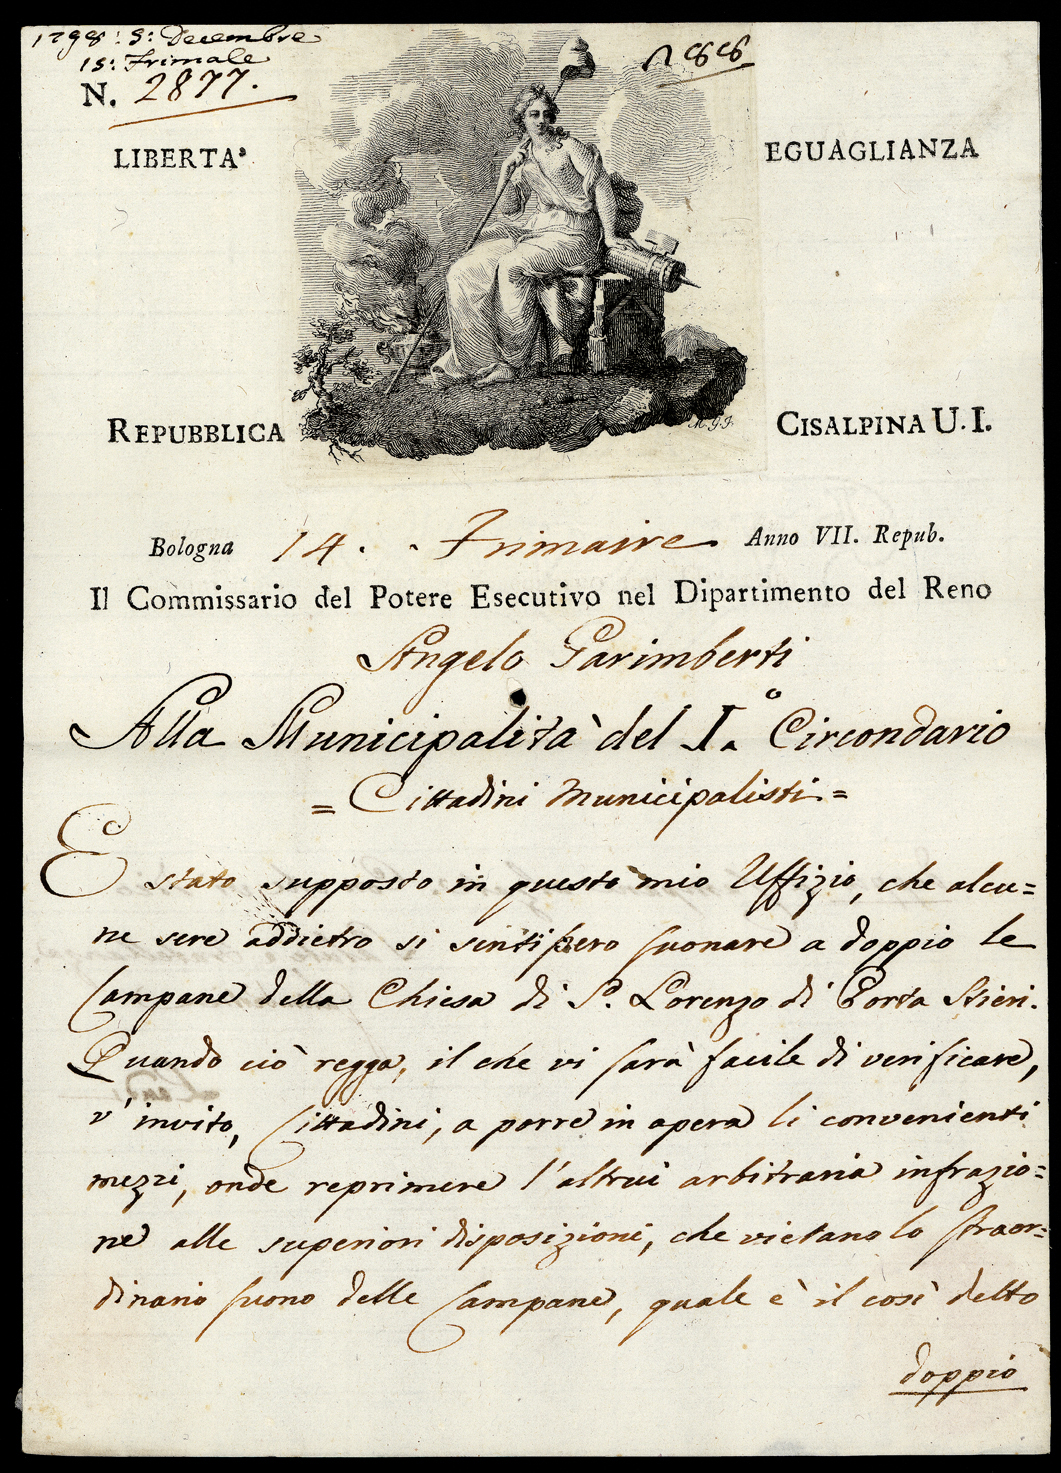 1798: 5: Decembre
15: Frimale
N. 2877.
LIBERTA'
EGUAGLIANZA
REPUBBLICA
CISALPINA U. I.
Bologna 14. Frimaire Anno VII. Repub.
Il Commissario del Potere Esecutivo nel Dipartimento del Reno
Angelo Garimberti
Alla Municipalità del I.° Circondario
= Cittadini Municipalisti =
E stato supposto in questo mio Uffizio, che alcu=
ne sere addietro si sentissero suonare a doppio le
Campane della Chiesa di S. Lorenzo di Porta Stieri.
Quando ciò regga, il che vi sarà facile di verificare,
v'invito, Cittadini, a porre in opera li convenienti
mezzi, onde reprimere l'altrui arbitraria infrazio=
ne alle superiori disposizioni, che vietano lo straor=
dinario suono delle Campane, quale è il così detto
doppio